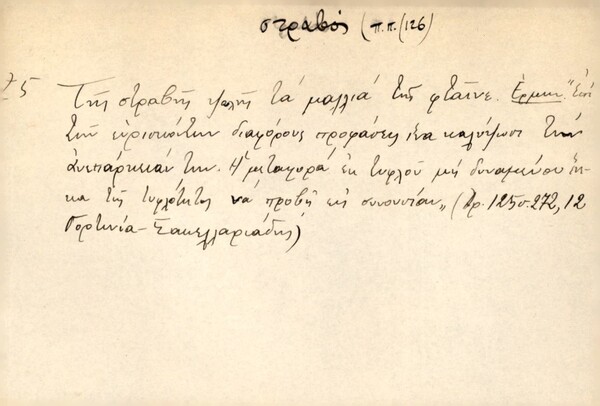 στραβός (π.π. (126)
75 Της στραβής ψωλής τα μαλλιά της φταίνε. Ερμην. "Επί
των ευρισκόντων διαφόρους προφάσεις ίνα καλύψωσι την
ανεπάρκειάν των. Η μεταφορά εκ τυφλού μη δυναμένου ένε-
κα της τυφλότητος να προβή εις συνουσίαν" (Αρ. 125 σ. 272, 12
Γορτυνία - Σακελλαριάδης)